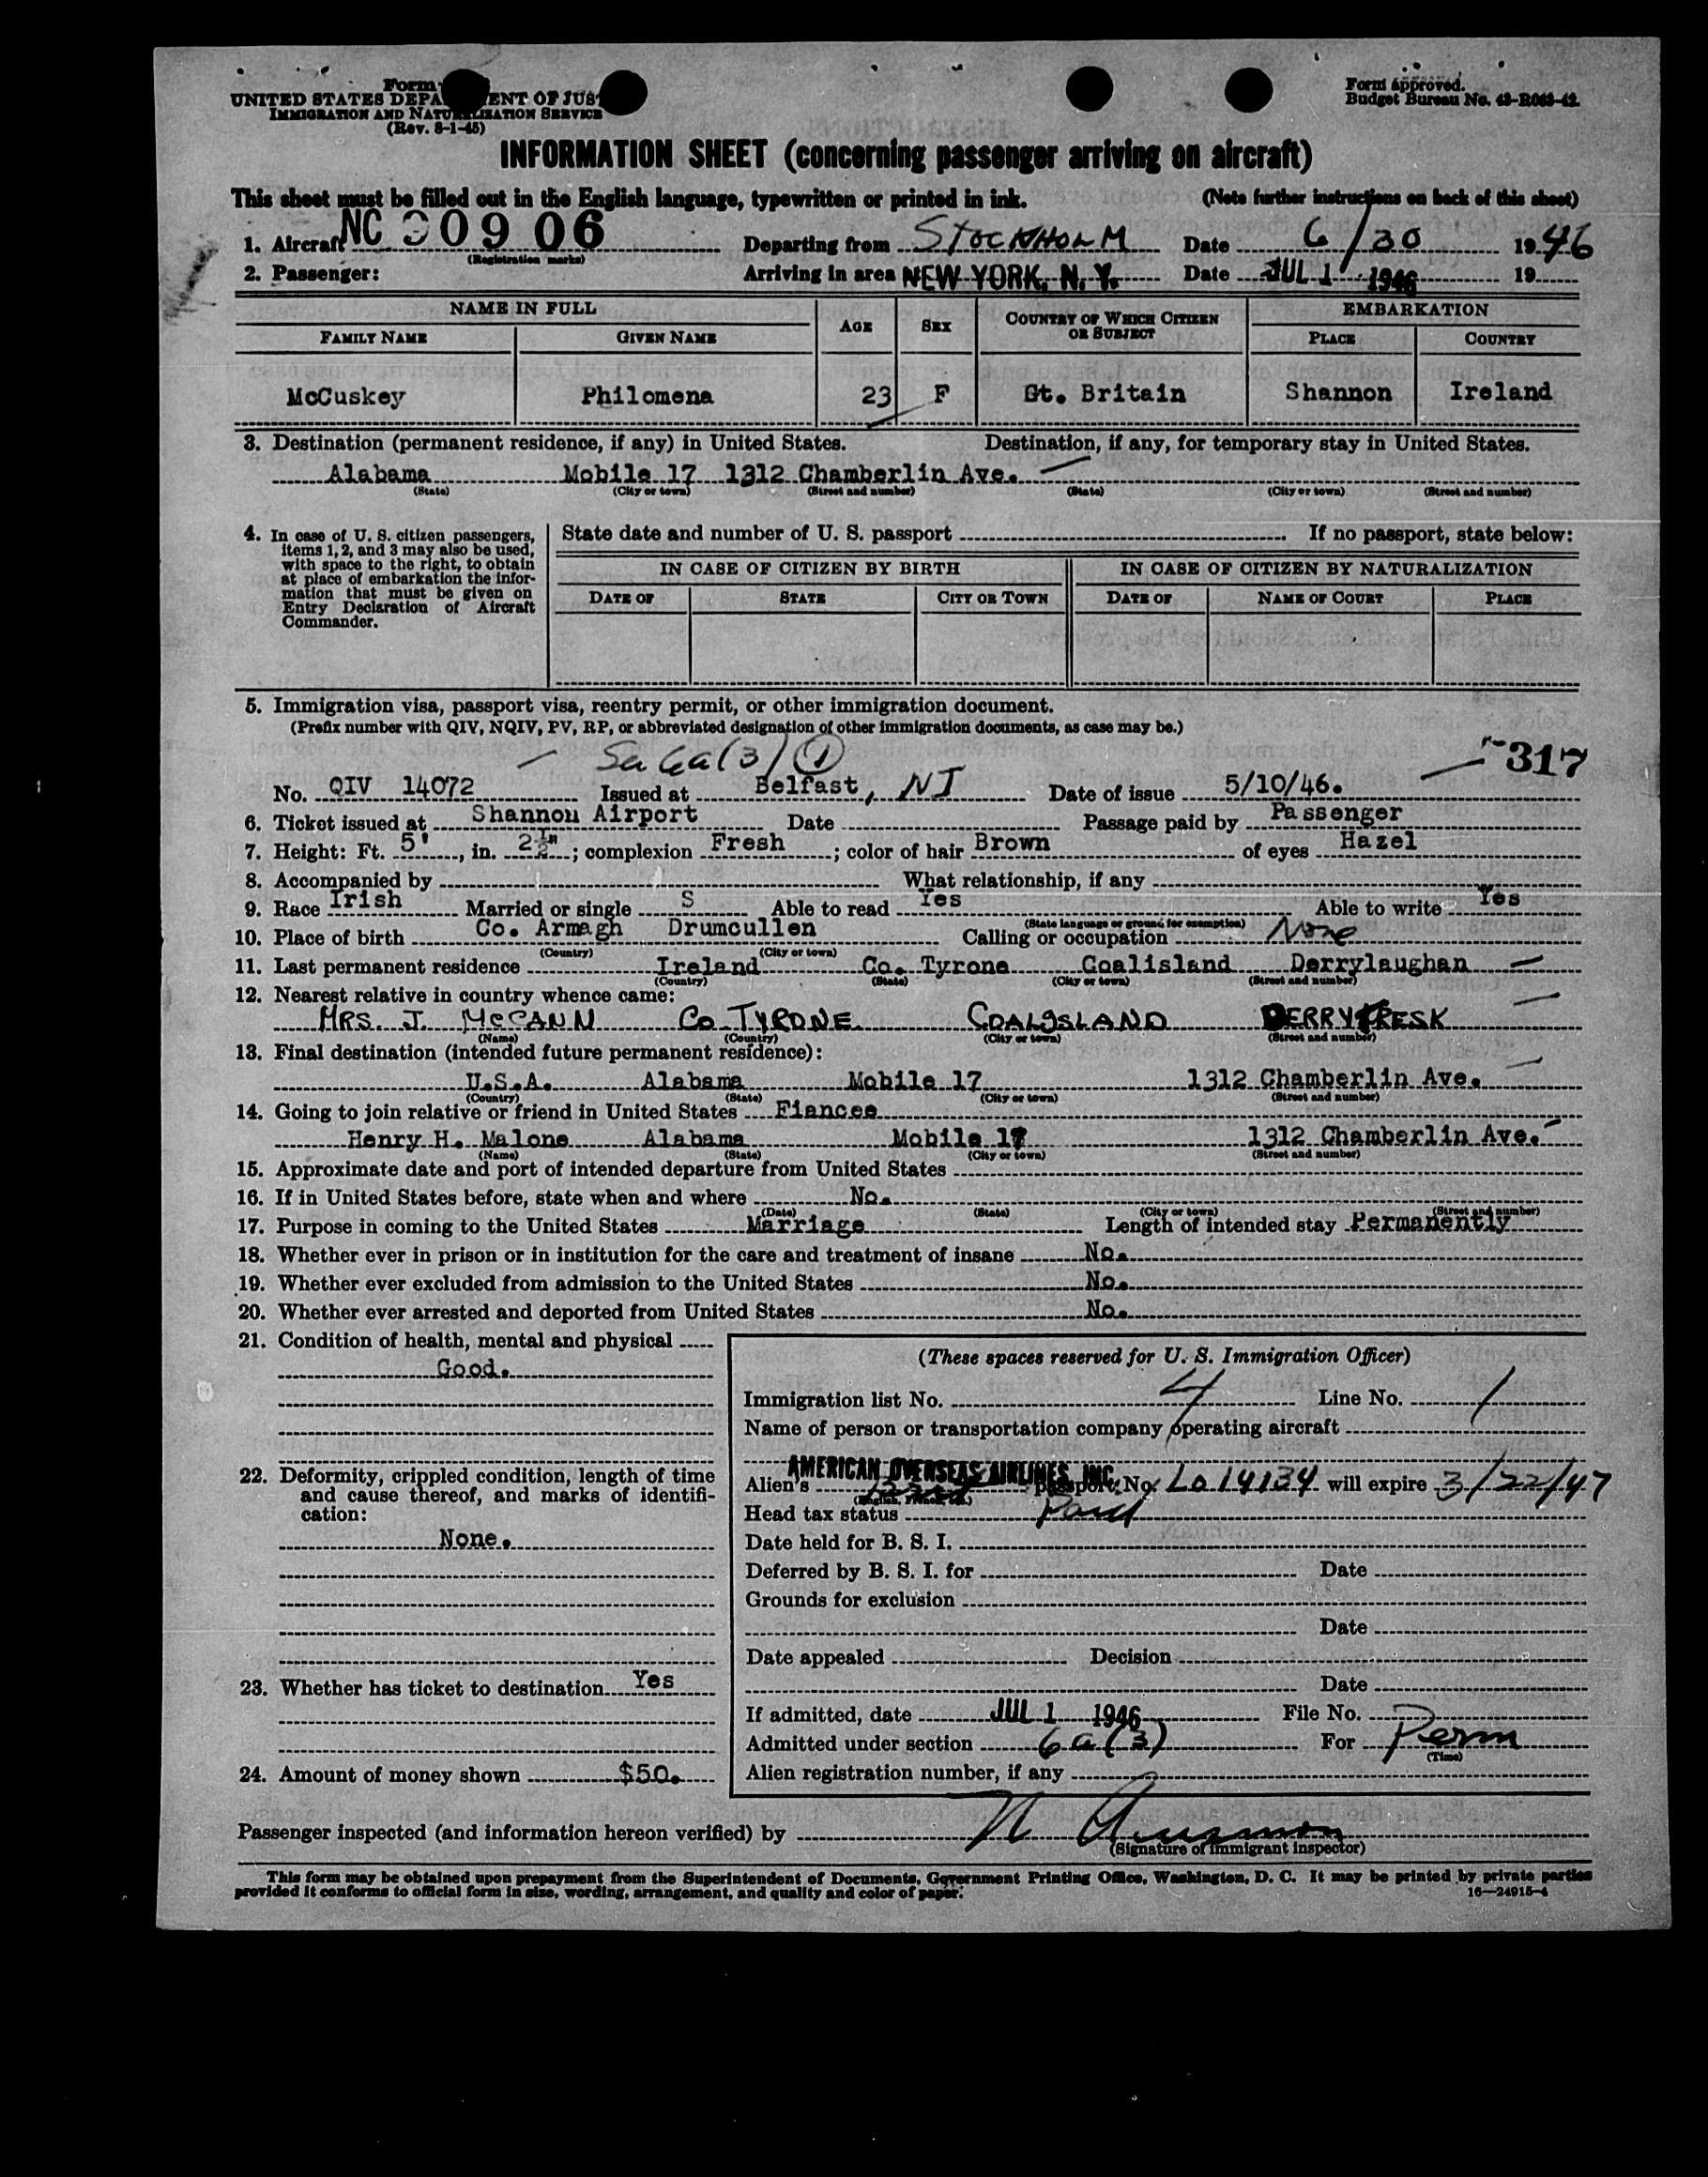 Form
UNITED STATES DEPA ENT OF JUS
IMMIGRATION AND NATURALIZATION SERVICE
(Rev. 8-1-45)
Form approved.
Budget Bureau No. 43-R063-42.
INFORMATION SHEET (concerning passenger arriving on aircraft)
This sheet must be filled out in the English language, typewritten or printed in ink. (Note further instructions on back of this sheet)
1. Aircraft NC 90906 Departing from STOCKHOLM Date 6/30 1946
(Registration marks)
2. Passenger: Arriving in area NEW YORK, N. Y. Date JUL 1 1946 19
NAME IN FULL AGE SEX COUNTRY OF WHICH CITIZEN OR SUBJECT EMBARKATION
FAMILY NAME GIVEN NAME PLACE COUNTRY
McCuskey Philomena 23 F Gt. Britain Shannon Ireland
3. Destination (permanent residence, if any) in United States. Destination, if any, for temporary stay in United States.
Alabama Mobile 17 1312 Chamberlin Ave.
(State) (City or town) (Street and number) (State) (City or town) (Street and number)
4. In case of U. S. citizen passengers, items 1, 2, and 3 may also be used, with space to the right, to obtain at place of embarkation the information that must be given on Entry Declaration of Aircraft Commander.
State date and number of U. S. passport If no passport, state below:
IN CASE OF CITIZEN BY BIRTH IN CASE OF CITIZEN BY NATURALIZATION
DATE OF STATE CITY OR TOWN DATE OF NAME OF COURT PLACE
5. Immigration visa, passport visa, reentry permit, or other immigration document.
(Prefix number with QIV, NQIV, PV, RP, or abbreviated designation of other immigration documents, as case may be.)
6a(3) 1 317
No. QIV 14072 Issued at Belfast, NI Date of issue 5/10/46.
6. Ticket issued at Shannon Airport Date Passage paid by Passenger
7. Height: Ft. 5', in. 2½"; complexion Fresh; color of hair Brown of eyes Hazel
8. Accompanied by What relationship, if any
9. Race Irish Married or single S Able to read Yes Able to write Yes
(State language or ground for exemption)
10. Place of birth Co. Armagh Drumcullen Calling or occupation None
(Country) (City or town)
11. Last permanent residence Ireland Co. Tyrone Coalisland Derrylaughan
(Country) (State) (City or town) (Street and number)
12. Nearest relative in country whence came:
MRS. J. McCANN CO TYRONE COALISLAND DERRYTRESK
(Name) (Country) (City or town) (Street and number)
13. Final destination (intended future permanent residence):
U.S.A. Alabama Mobile 17 1312 Chamberlin Ave.
(Country) (State) (City or town) (Street and number)
14. Going to join relative or friend in United States Fiancee
Henry H. Malone Alabama Mobile 17 1312 Chamberlin Ave.
(Name) (State) (City or town) (Street and number)
15. Approximate date and port of intended departure from United States
16. If in United States before, state when and where No.
(Date) (State) (City or town) (Street and number)
17. Purpose in coming to the United States Marriage Length of intended stay Permanently
18. Whether ever in prison or in institution for the care and treatment of insane No.
19. Whether ever excluded from admission to the United States No.
20. Whether ever arrested and deported from United States No.
21. Condition of health, mental and physical
Good.
22. Deformity, crippled condition, length of time and cause thereof, and marks of identification:
None.
23. Whether has ticket to destination Yes
24. Amount of money shown $50.
(These spaces reserved for U. S. Immigration Officer)
Immigration list No. 4 Line No. 1
Name of person or transportation company operating aircraft
AMERICAN OVERSEAS AIRLINES, INC.
Alien's passport: No. LO 14134 will expire 3/22/47
(English, French, etc.)
Head tax status Paid
Date held for B. S. I.
Deferred by B. S. I. for Date
Grounds for exclusion
Date
Date appealed Decision
Date
If admitted, date JUL 1 1946 File No.
Admitted under section 6a(3) For Perm
(Time)
Alien registration number, if any
Passenger inspected (and information hereon verified) by
(Signature of immigrant inspector)
This form may be obtained upon prepayment from the Superintendent of Documents, Government Printing Office, Washington, D. C. It may be printed by private parties
provided it conforms to official form in size, wording, arrangement, and quality and color of paper.
16—24915-4